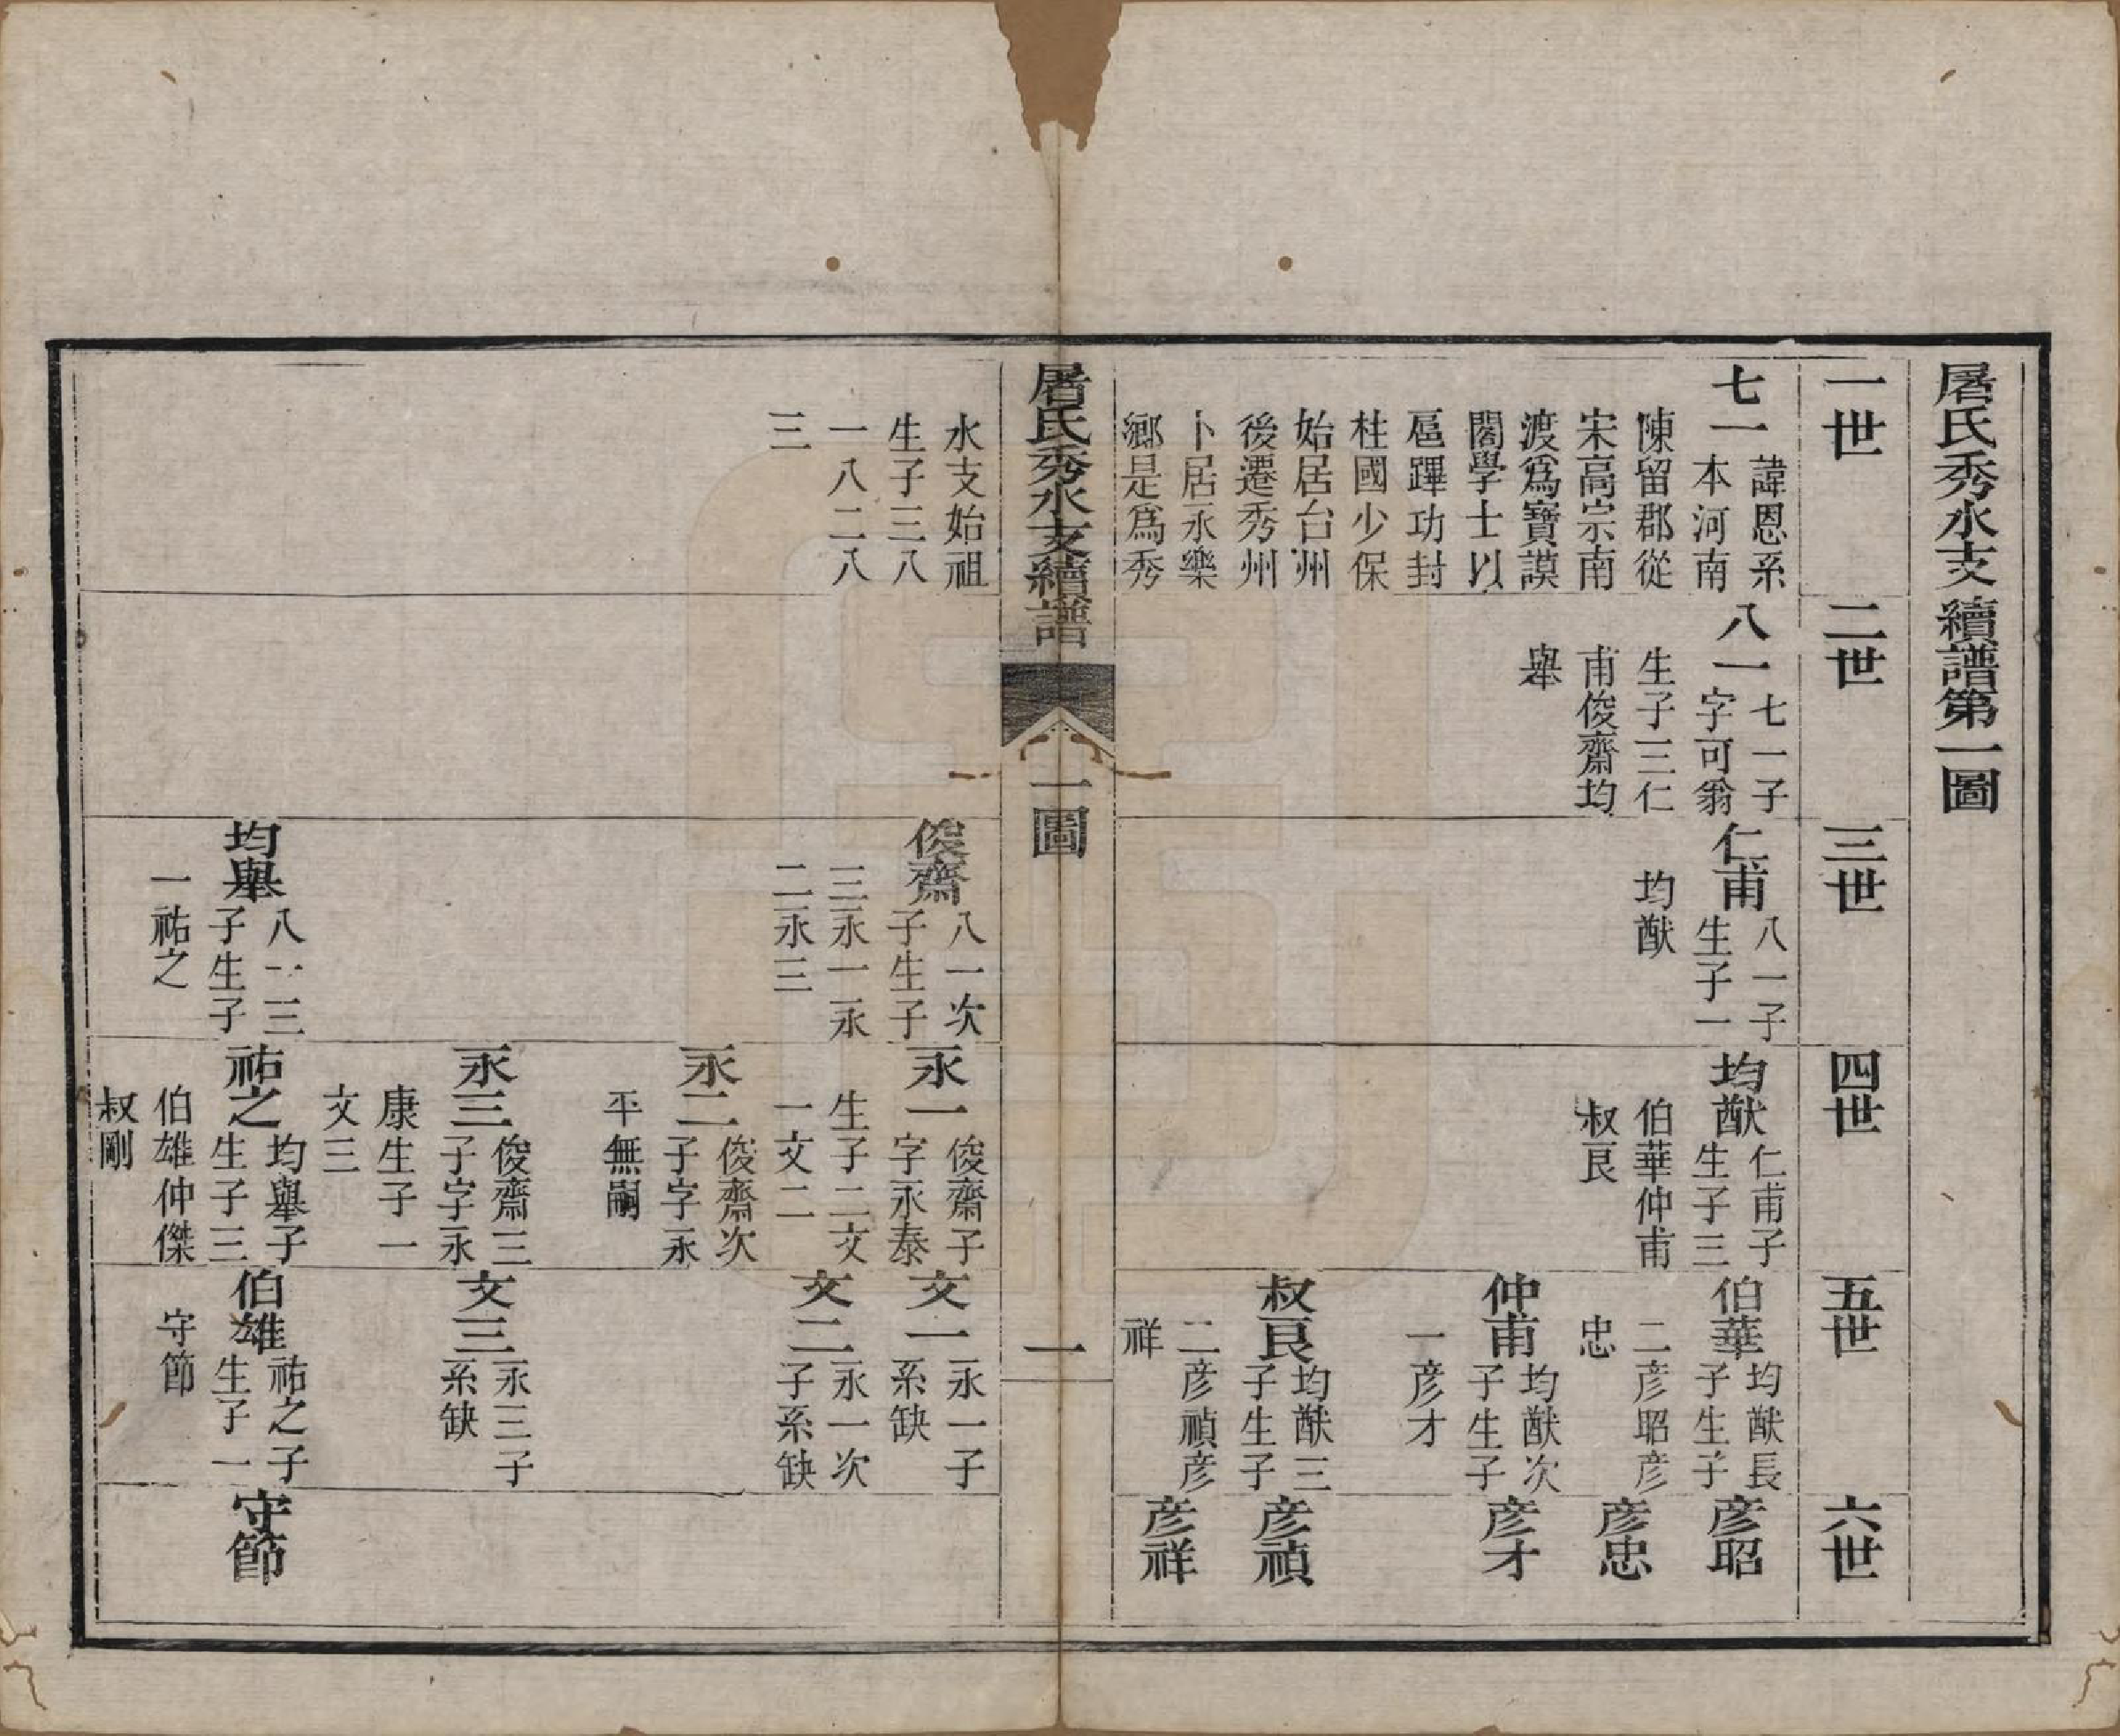 屠氏秀水支續譜第一圖
一世
二世
三世
四世
五世
六世
七一
諱恩系
本河南
陳留郡從
宋高宗南
渡爲寶謨
閣學士以
扈蹕功封
柱國少保
始居台州
後遷秀州
卜居永樂
鄉是爲秀
八一
七一子
字可翁
生子三仁
甫俊齋均
舉
仁甫
八一子
生子一
均猷
均猷
仁甫子
生子三
伯華仲甫
叔艮
伯華
均猷長
子生子
二彥昭彥
忠
仲甫
均猷次
子生子
一彥才
叔艮
均猷三
子生子
二彥禎彥
祥
彥昭
彥忠
彥才
彥禎
彥祥
屠氏秀水支續譜
一圖
一
水支始祖
生子三八
一八二八
三
俊齋
八一次
子生子
三永一永
二永三
均舉
八一三
子生子
一祐之
永一
俊齋子
字永泰
生子二文
一文二
永二
俊齋次
子字永
平無嗣
永三
俊齋三
子字永
康生子一
文三
祐之
均舉子
生子三
伯雄仲傑
叔剛
文一
永一子
系缺
文二
永一次
子系缺
文三
永三子
系缺
伯雄
祐之子
生子一
守節
守節